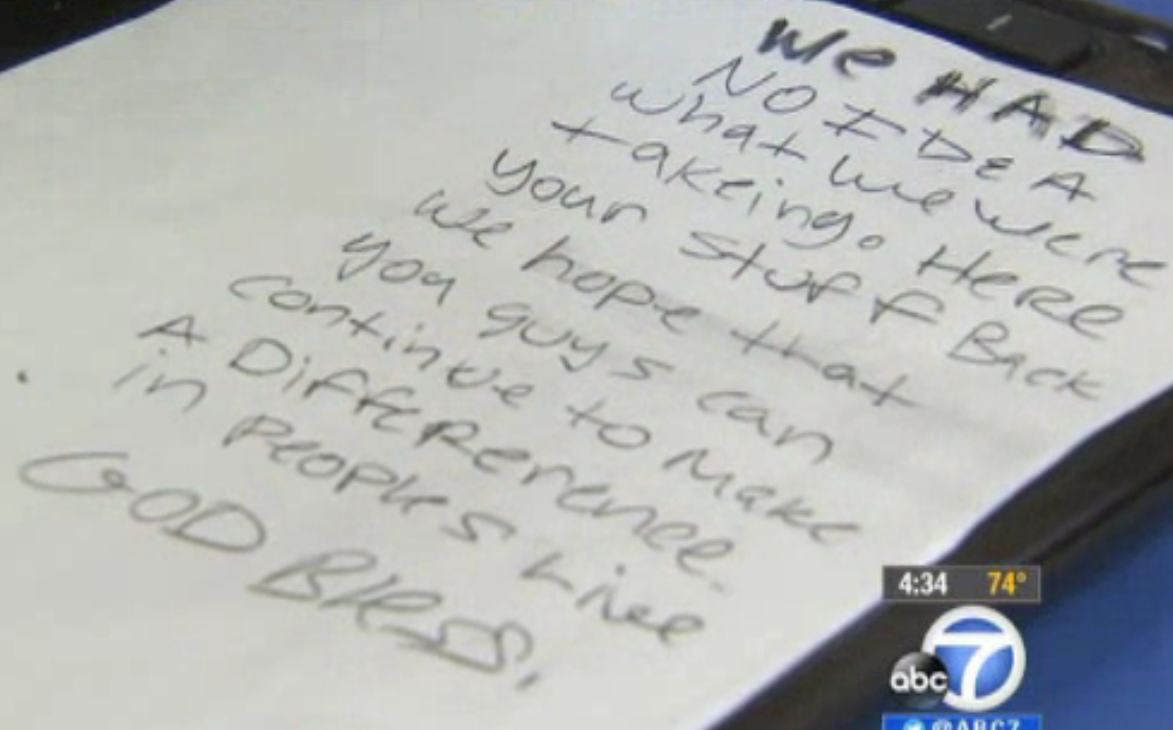 We HAD
NO IDEA
what we were
takeing. HeRe
your stuff BacK
we hope that
you guys can
continue to Make
A DiffeRerence.
in PeoPles Live
GOD Bless.
4:34 74°
abc 7
@ABC7